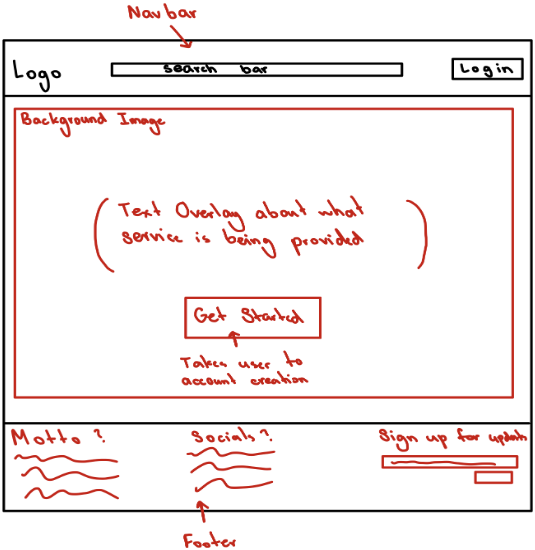 Navbar
Logo
search bar
Login
Background Image
Text Overlay about what
service is being provided
Get Started
Takes user to
account creation
Motto?
Socials?
Sign up for updates
Footer